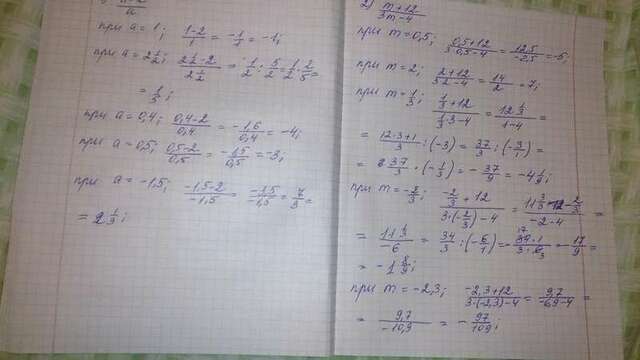 при a = 1; (1-2)/1 = -1/1 = -1;
при a = 2 1/2; (2 1/2 - 2)/(2 1/2) = 1/2 : 5/2 = 1/2 · 2/5 =
= 1/5;
при a = 0,4; (0,4-2)/0,4 = -1,6/0,4 = -4;
при a = 0,5; (0,5-2)/0,5 = -1,5/0,5 = -3;
при a = -1,5; (-1,5-2)/-1,5 = = 7/3 =
= 2 1/3;
2) (m+12)/(3m-4)
при m = 0,5; (0,5+12)/(3·0,5-4) = 12,5/-2,5 = -5;
при m = 2; (2+12)/(3·2-4) = 14/2 = 7;
при m = 1/3; (1/3+12)/(1/3·3-4) = (12 1/3)/(1-4) =
= (12·3+1)/3 : (-3) = 37/3 : (-3/1) =
= 37/3 · (-1/3) = -37/9 = -4 1/9;
при m = -2/3; (-2/3+12)/(3·(-2/3)-4) = /(-2-4) =
= (11 1/3)/-6 = 34/3 : (-6/1) = = -17/9 =
= -1 8/9;
при m = -2,3; (-2,3+12)/(3·(-2,3)-4) = 9,7/(-6,9-4) =
= 9,7/-10,9 = -97/109;